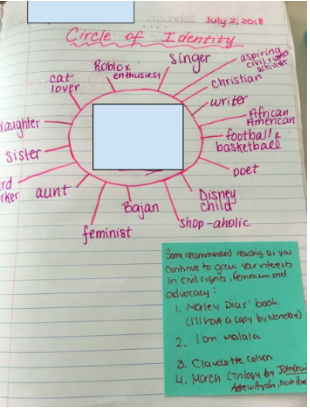 July 2, 2018
Circle of Identity
Roblox
enthusiast
Singer
aspiring
civil rights
activist
cat
lover
christian
writer
African
American
daughter
football &
basketball
sister
poet
aunt
Disney
child
Bajan
shop-aholic
feminist
Some recommended reading as you
continue to grow your interests
in civil rights, feminism and
advocacy:
1. Marley Dias' book
(I'll have a copy by Monday)
2. I am Malala
3. Claudette Colvin
4. March (Trilogy by John Lewis,